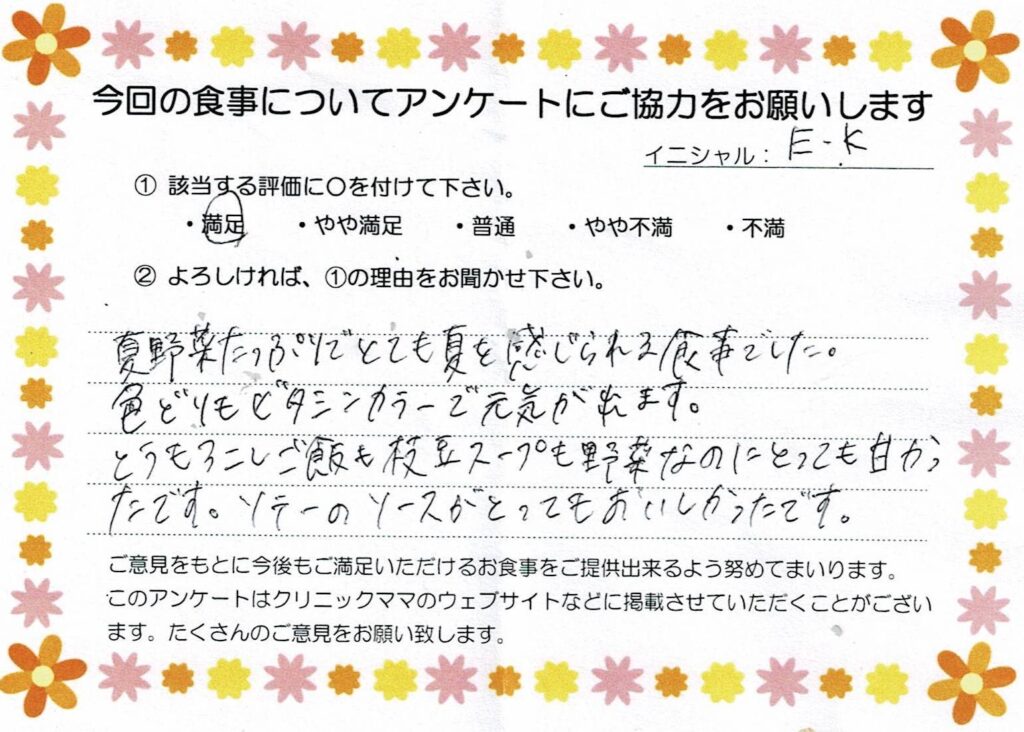 今回の食事についてアンケートにご協力をお願いします
イニシャル： E-K
① 該当する評価に〇を付けて下さい。
・満足 ・やや満足 ・普通 ・やや不満 ・不満
② よろしければ、①の理由をお聞かせ下さい。
夏野菜たっぷりでとても夏を感じられる食事でした。
色どりもビタミンカラーで元気が出ます。
とうもろこしご飯も枝豆スープも野菜なのにとっても甘かっ
たです。ソテーのソースがとってもおいしかったです。
ご意見をもとに今後もご満足いただけるお食事をご提供出来るよう努めてまいります。
このアンケートはクリニックママのウェブサイトなどに掲載させていただくことがござい
ます。たくさんのご意見をお願い致します。